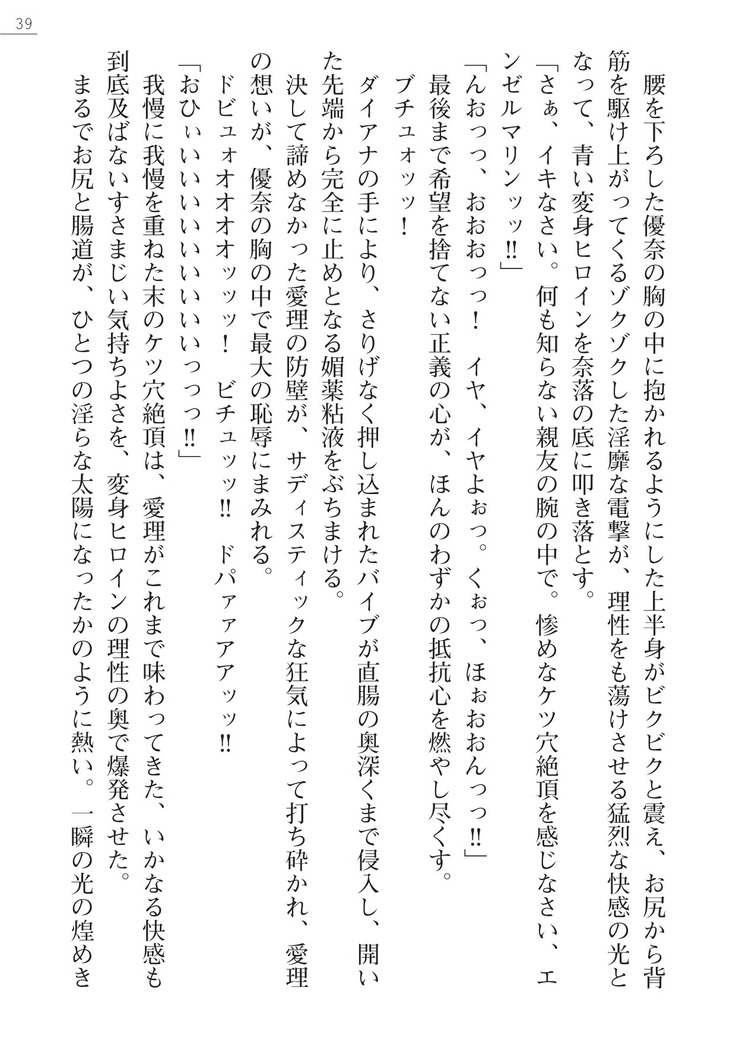 39
腰を下ろした優奈の胸の中に抱かれるようにした上半身がビクビクと震え、お尻から背
筋を駆け上がってくるゾクゾクした淫靡な電撃が、理性をも蕩けさせる猛烈な快感の光と
なって、青い変身ヒロインを奈落の底に叩き落とす。
「さぁ、イキなさい。何も知らない親友の腕の中で。惨めなケツ穴絶頂を感じなさい、エ
ンゼルマリンッッ‼」
「んおっっ、おおおっっ！　イヤ、イヤよぉっ。くぉっっ、ほぉおおんっっ‼」
最後まで希望を捨てない正義の心が、ほんのわずかの抵抗心を燃やし尽くす。
ブチュォッッ！
ダイアナの手により、さりげなく押し込まれたバイブが直腸の奥深くまで侵入し、開い
た先端から完全に止めとなる媚薬粘液をぶちまける。
決して諦めなかった愛理の防壁が、サディスティックな狂気によって打ち砕かれ、愛理
の想いが、優奈の胸の中で最大の恥辱にまみれる。
ドビュォオオオオッッッ！　ビチュッッ‼　ドパァァアアッッ‼
「おひぃいいいいいいいいいいいっっっ‼」
我慢に我慢を重ねた末のケツ穴絶頂は、愛理がこれまで味わってきた、いかなる快感も
到底及ばないすさまじい気持ちよさを、変身ヒロインの理性の奥で爆発させた。
まるでお尻と腸道が、ひとつの淫らな太陽になったかのように熱い。一瞬の光の煌めき